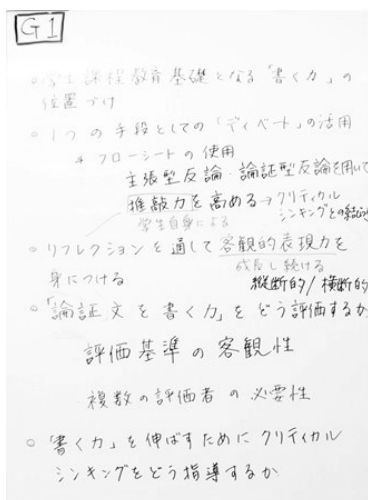 G1
○学士課程教育基礎となる「書く力」の
位置づけ
○1つの手段としての「ディベート」の活用
フローシートの使用
主張型反論・論証型反論を用いて
推敲力を高める→クリティカル
シンキングとの
学生自身による
○リフレクションを通して客観的表現力を
成長し続ける
身につける
縦断的/横断的
○「論証文を書く力」をどう評価するか
評価基準の客観性
複数の評価者の必要性
○「書く力」を伸ばすためにクリティカル
シンキングをどう指導するか